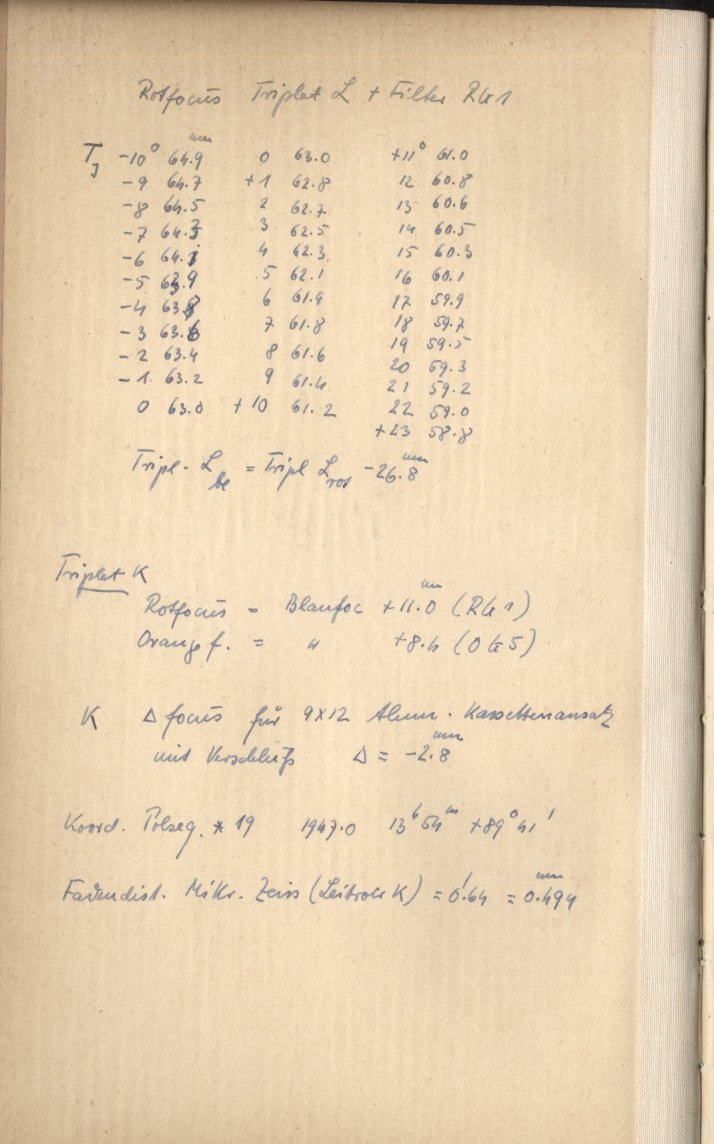 Rotfocus Triplet L + Filter RG1
mm
T_J -10° 64.9 0 63.0 +11° 61.0
-9 64.7 +1 62.8 12 60.8
-8 64.5 2 62.7 13 60.6
-7 64.3 3 62.5 14 60.5
-6 64.1 4 62.3 15 60.3
-5 63.9 5 62.1 16 60.1
-4 63.8 6 61.9 17 59.9
-3 63.6 7 61.8 18 59.7
-2 63.4 8 61.6 19 59.5
-1 63.2 9 61.4 20 59.3
0 63.0 +10 61.2 21 59.2
22 59.0
+23 58.8
Tripl. L = Tripl L_rot -26.8 mm
Triplet K
Rotfocus = Blaufoc +11.0 mm (RG1)
Orange f. = " +8.4 (OG5)
K Δ focus für 9x12 Alum. Kassettenansatz
mit Verschluß Δ = -2.8 mm
Koord. Polseq. * 19 1947.0 13h 54m +89° 41'
Fadendist. Mikr. Zeiss (Leitrohr K) = 0'.64 = 0.494 mm